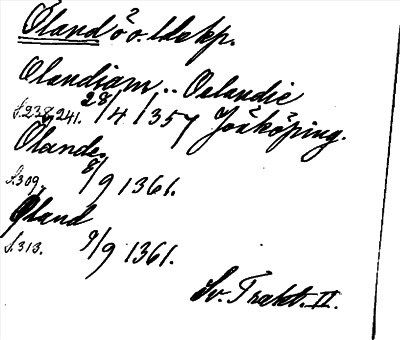 Öland ö o. ldskp.
Olandiam .. Oelandie
S.238,241. 28/4 1357 Jönköping.
Ölande
S.309, 8/9 1361.
Øland
S.313. 9/9 1361.
Sv. Trakt. II.